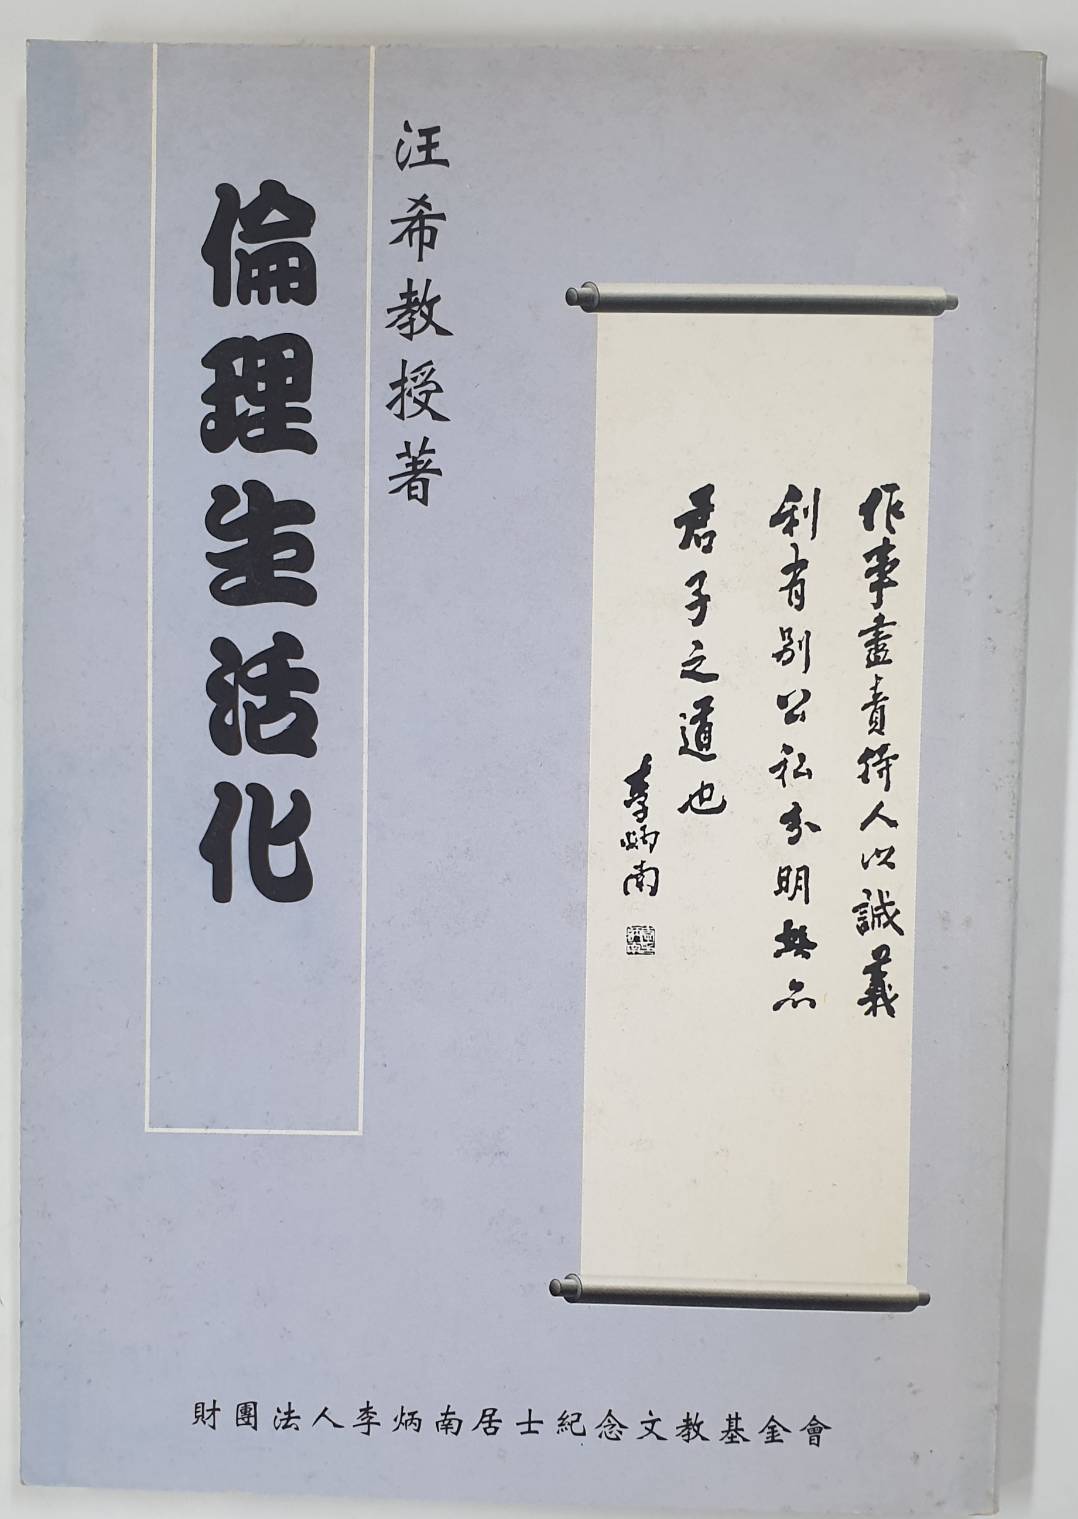 汪希教授著
倫理生活化
作事盡責待人以誠義
利有別公私分明無不
君子之道也
李炳南
財團法人李炳南居士紀念文教基金會